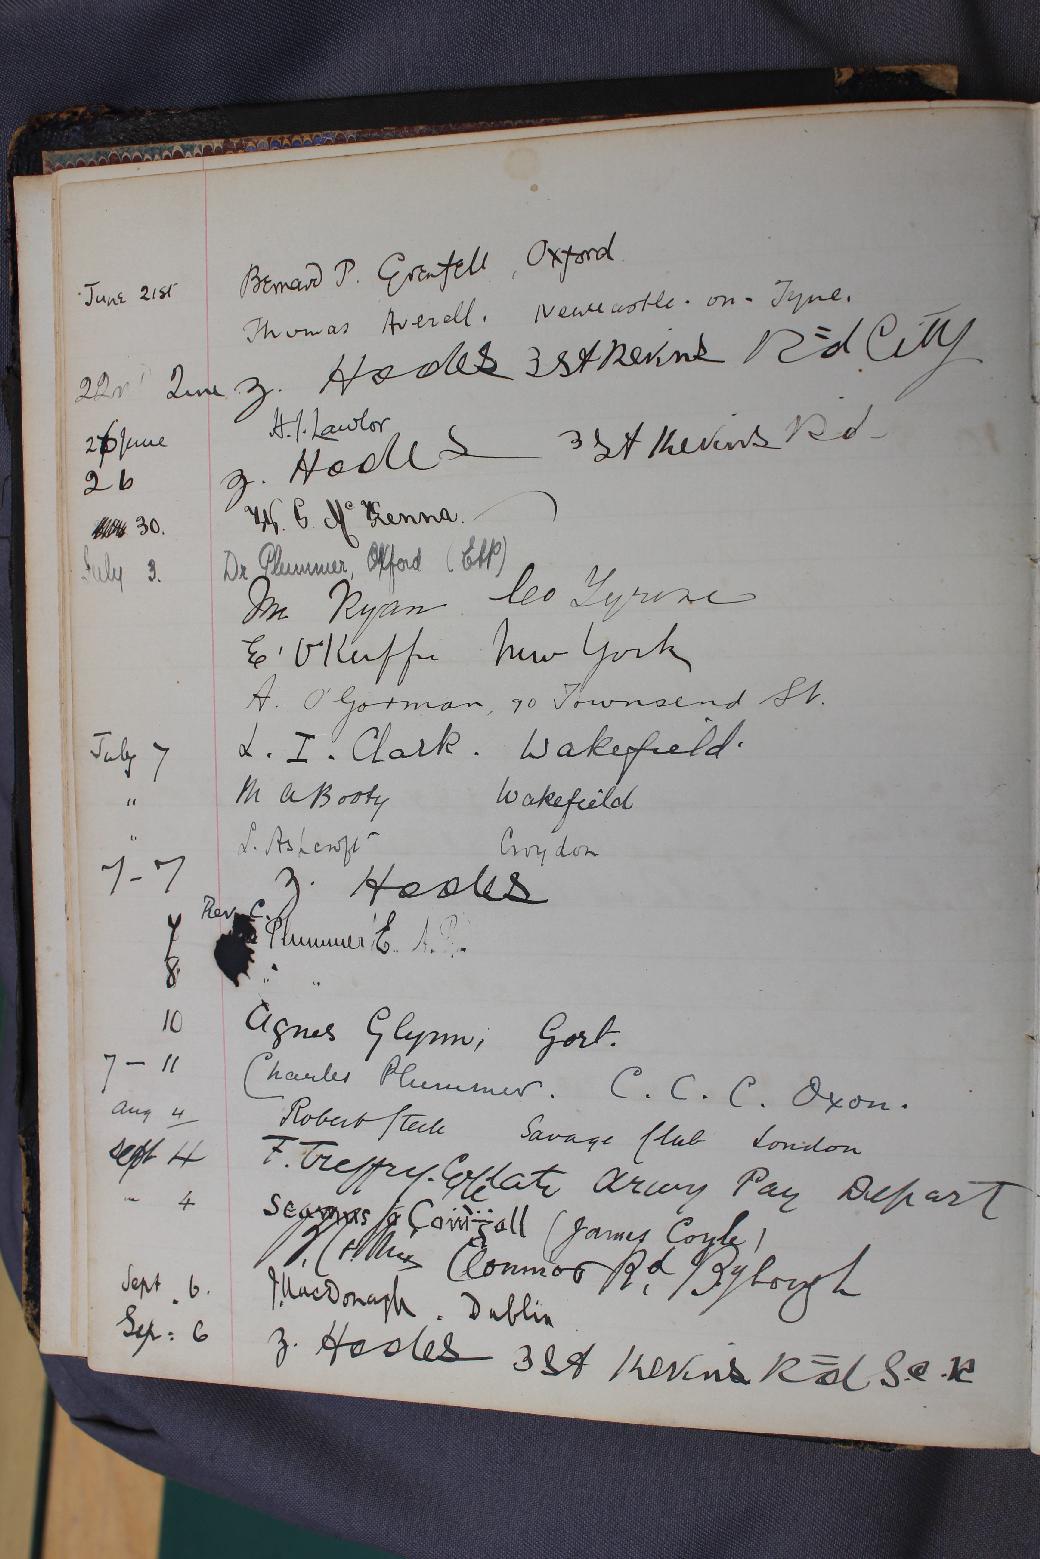 June 21st Bernard P. Grenfell, Oxford
Thomas Averell. Newcastle-on-Tyne.
22nd June Z. Hodes 3 St Kevins Rd City
26 June H.J. Lawlor
26 Z. Hodes 3 St Kevins Rd
30. W. C. McKenna.
July 3. Dr Plummer, Oxford
M Ryan Co Tyrone
E. O'Keeffe New York
A. O'Gorman, 70 Townsend St.
July 7 L. I. Clark. Wakefield.
" M A Booty Wakefield
" L. Ashcroft Croydon
7-7 Z. Hodes
7 Rev. C. Plummer E.
8 " "
10 Agnes Glynn, Gort.
7-11 Charles Plummer. C. C. C. Oxon.
Aug 4 Robert Steele Savage Club London
Sept 4 F. Treffry. Army Pay Depart
" 4 Seamus (James Coyle)
Connor Rd
Sept. 6. J. MacDonagh. Dublin
Sep: 6 Z. Hodes 3 St Kevins Rd S.C.R